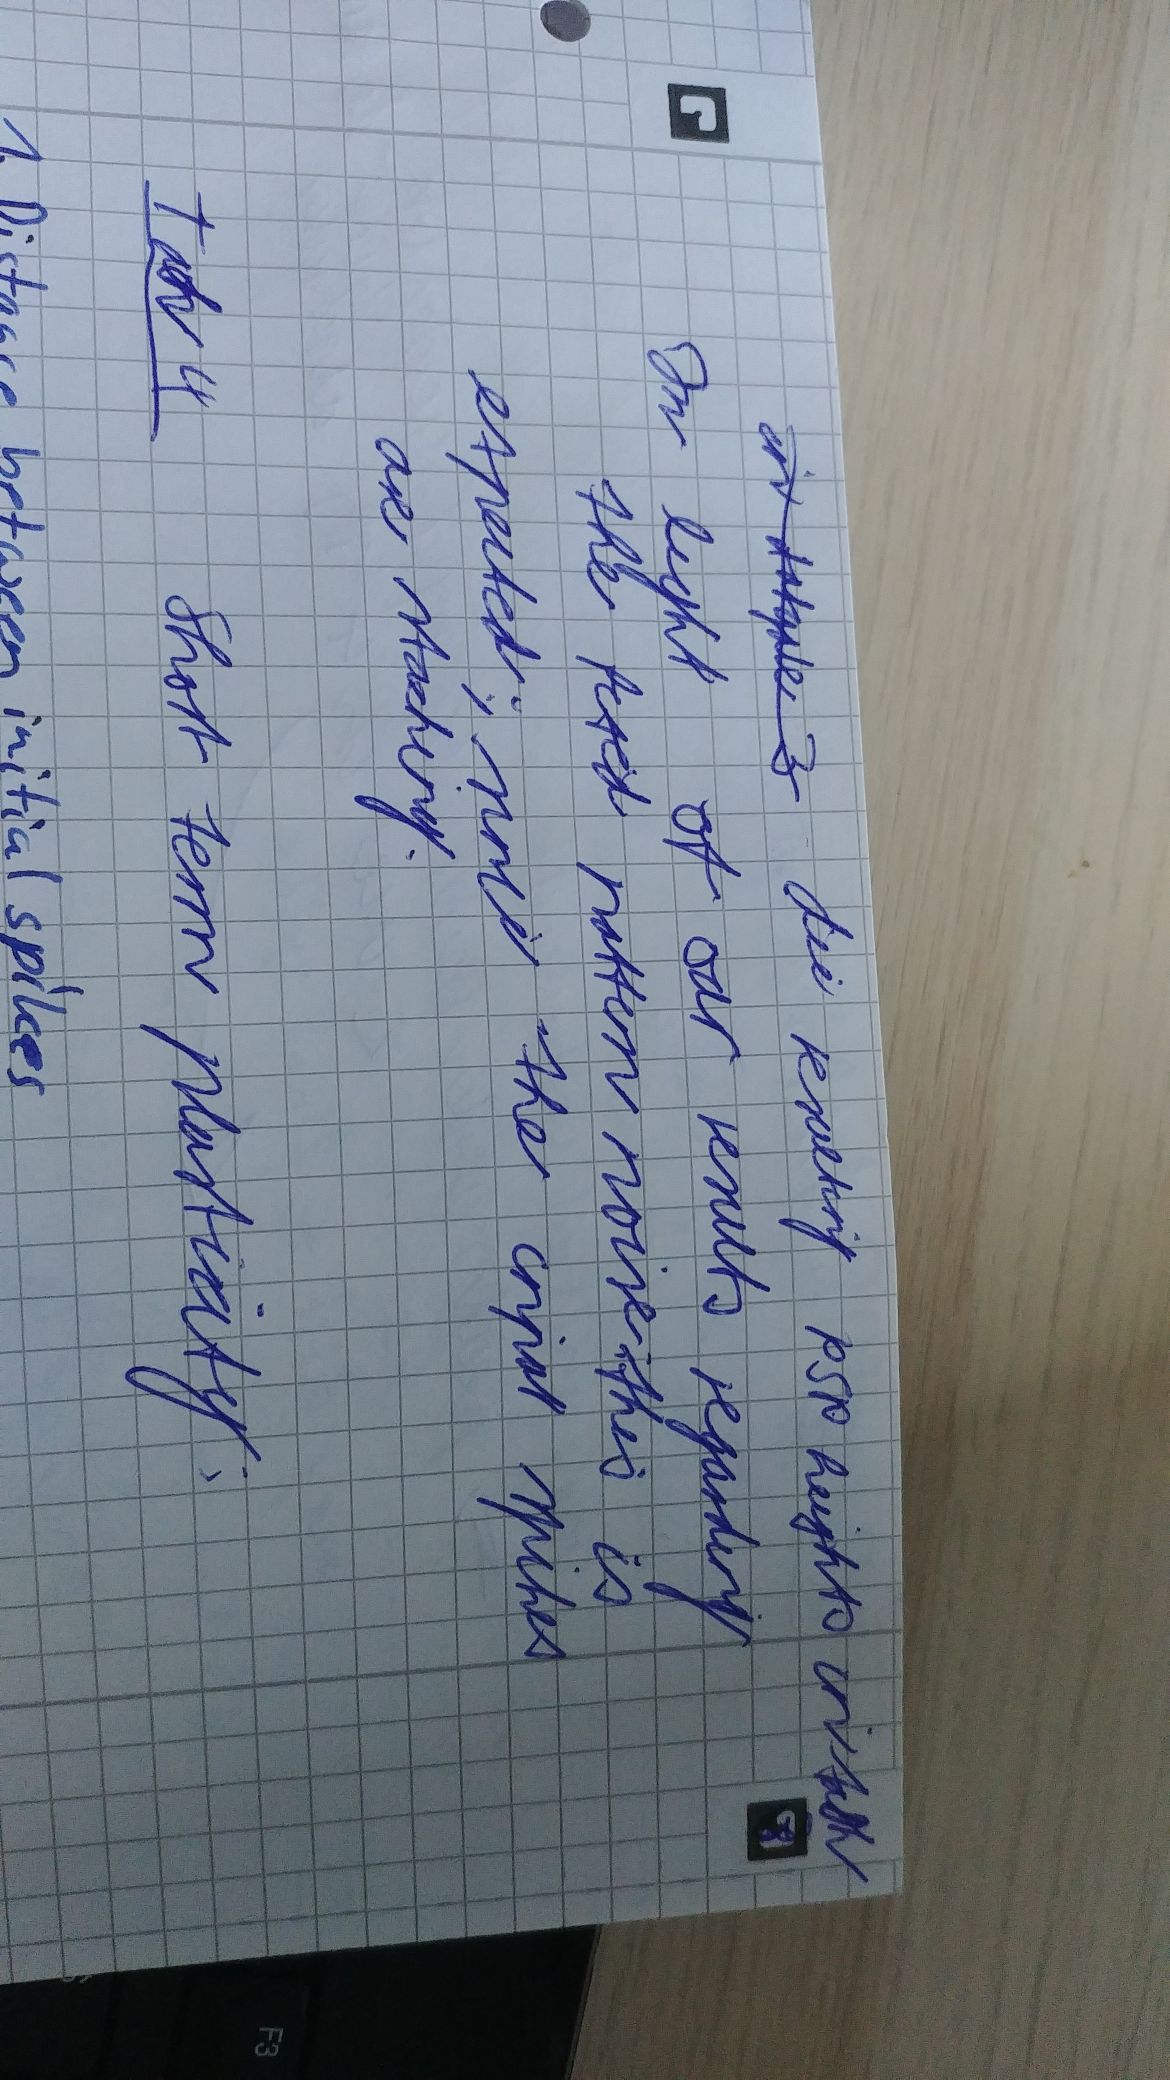 die resulting PSP heights in tath
In light of our results regarding
the fixed pattern noise this is
expected, since the input spikes
are stacking.
Task 4 Short term plasticity:
1. Distance between initial spikes
F3